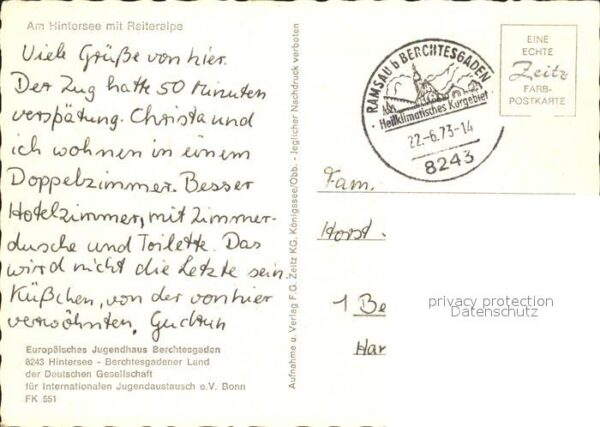 Am Hintersee mit Reiteralpe
Viele Grüße von hier.
Der Zug hatte 50 Minuten
verspätung. Christa und
ich wohnen in einem
Doppelzimmer. Besser
Hotelzimmer, mit Zimmer-
dusche und Toilette. Das
wird nicht die Letzte sein
Küßchen, von der von hier
verwöhnten, Gudrun
Europäisches Jugendhaus Berchtesgaden
8243 Hintersee - Berchtesgadener Land
der Deutschen Gesellschaft
für Internationalen Jugendaustausch e.V. Bonn
FK 551
Aufnahme u. Verlag F.G. Zeitz KG. Königssee/Obb. - Jeglicher Nachdruck verboten
RAMSAU b BERCHTESGADEN
Heilklimatisches Kurgebiet
22.-6.73-14
8243
EINE
ECHTE
Zeitz
FARB-
POSTKARTE
Fam.
Horst
1 Be
Har
privacy protection
Datenschutz